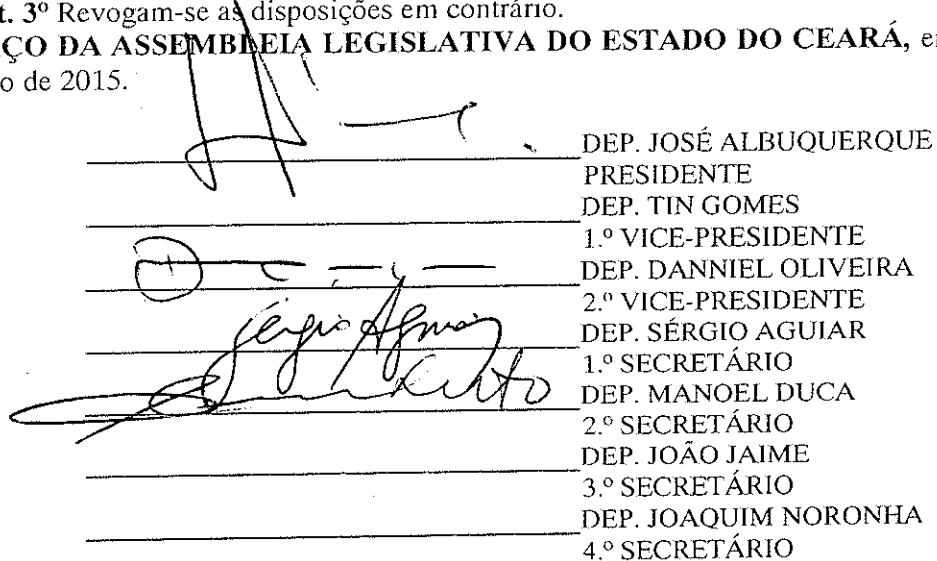 t. 3º Revogam-se as disposições em contrário.
ÇO DA ASSEMBLEIA LEGISLATIVA DO ESTADO DO CEARÁ, e
o de 2015.
DEP. JOSÉ ALBUQUERQUE
PRESIDENTE
DEP. TIN GOMES
1.º VICE-PRESIDENTE
DEP. DANNIEL OLIVEIRA
2.º VICE-PRESIDENTE
Sérgio Aguiar
DEP. SÉRGIO AGUIAR
1.º SECRETÁRIO
DEP. MANOEL DUCA
2.º SECRETÁRIO
DEP. JOÃO JAIME
3.º SECRETÁRIO
DEP. JOAQUIM NORONHA
4.º SECRETÁRIO